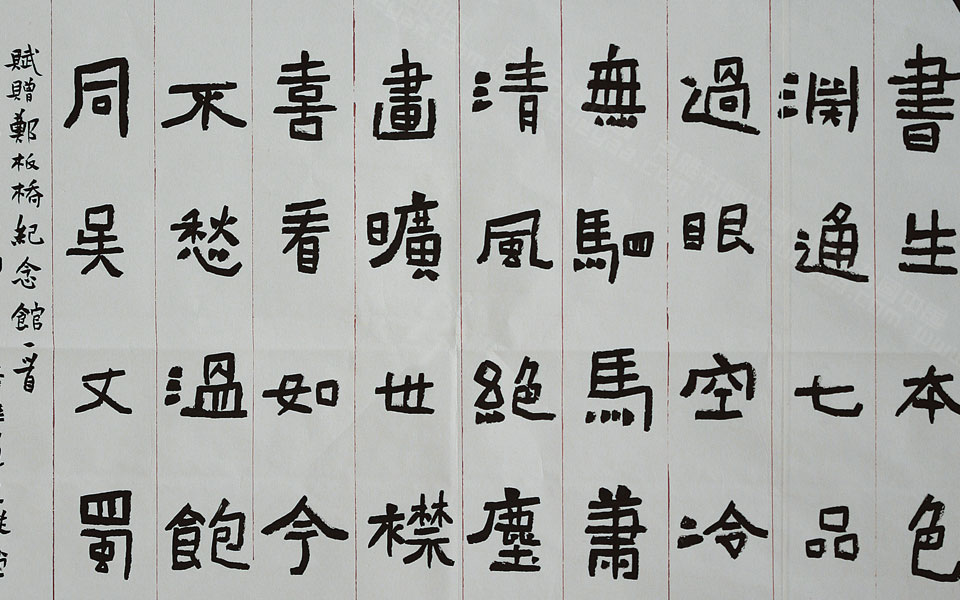 書生本色
淵通七品
過眼空冷
無駟馬蕭
清風絕塵
畫曠世襟
喜看如今
不愁溫飽
同吴丈蜀
賦贈鄭板橋紀念館一首